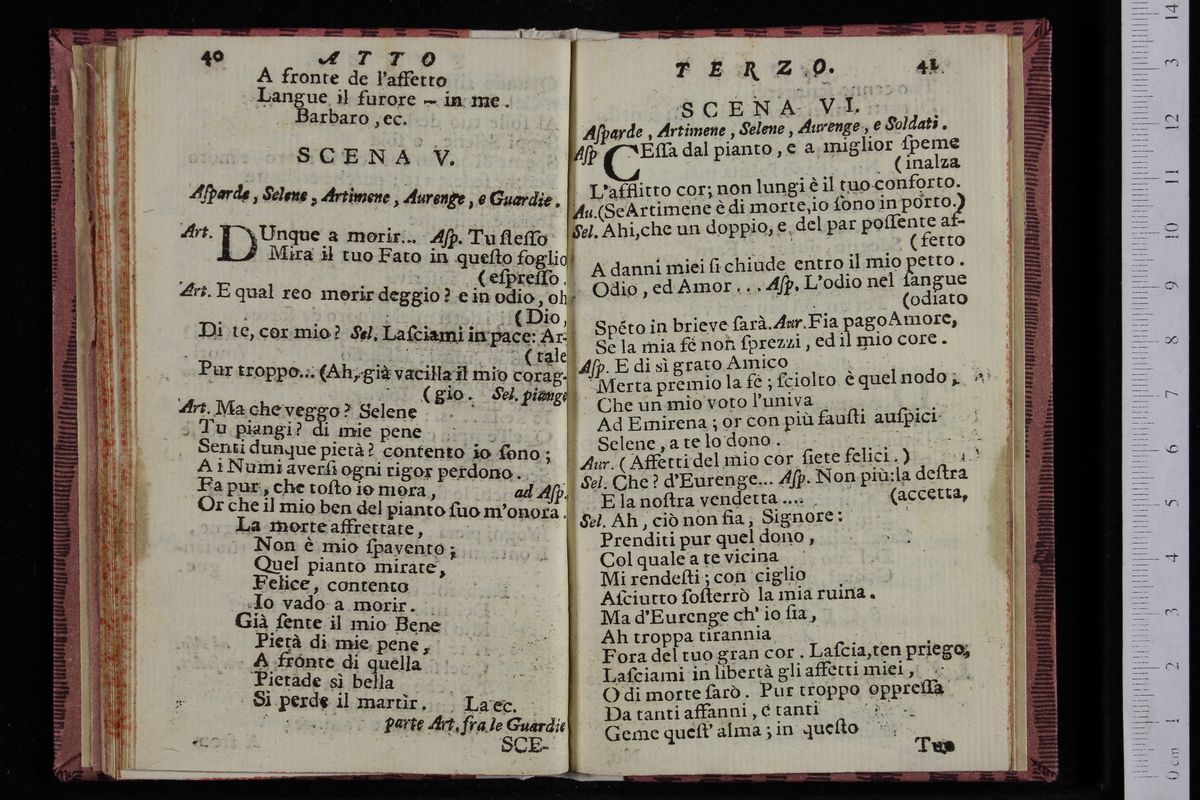 40 ATTO
A fronte de l'affetto
Langue il furore ~ in me.
Barbaro, ec.
SCENA V.
Aſparde, Selene, Artimene, Aurenge, e Guardie.
Art. DUnque a morir... Aſp. Tu ſteſſo
Mira il tuo Fato in queſto foglio
(eſpreſſo.
Art. E qual reo morir deggio? e in odio, oh
(Dio,
Di te, cor mio? Sel. Laſciami in pace: Ar-
(tale
Pur troppo... (Ah, già vacilla il mio corag-
(gio. Sel. piange
Art. Ma che veggo? Selene
Tu piangi? di mie pene
Senti dunque pietà? contento io ſono;
A i Numi averſi ogni rigor perdono.
Fa pur, che toſto io mora, ad Aſp.
Or che il mio ben del pianto ſuo m'onora.
La morte affrettate,
Non è mio ſpavento;
Quel pianto mirate,
Felice, contento
Io vado a morir.
Già ſente il mio Bene
Pietà di mie pene,
A fronte di quella
Pietade sì bella
Si perde il martìr. La ec.
parte Art. fra le Guardie
SCE-
TERZO. 41
SCENA VI.
Aſparde, Artimene, Selene, Aurenge, e Soldati.
Aſp CEſſa dal pianto, e a miglior ſpeme
(inalza
L'afflitto cor; non lungi è il tuo conforto.
Au. (Se Artimene è di morte, io ſono in porto.)
Sel. Ahi, che un doppio, e del par poſſente af-
(fetto
A danni miei ſi chiude entro il mio petto.
Odio, ed Amor... Aſp. L'odio nel ſangue
(odiato
Spéto in brieve ſarà. Aur. Fia pago Amore,
Se la mia fè non ſprezzi, ed il mio core.
Aſp. E di sì grato Amico
Merta premio la fè; ſciolto è quel nodo;
Che un mio voto l'univa
Ad Emirena; or con più fauſti auſpici
Selene, a te lo dono.
Aur. (Affetti del mio cor ſiete felici.)
Sel. Che? d'Eurenge... Aſp. Non più: la deſtra
E la noſtra vendetta .... (accetta,
Sel. Ah, ciò non fia, Signore:
Prenditi pur quel dono,
Col quale a te vicina
Mi rendeſti; con ciglio
Aſciutto ſoſterrò la mia ruina.
Ma d'Eurenge ch' io ſia,
Ah troppa tirannia
Fora del tuo gran cor. Laſcia, ten priego,
Laſciami in libertà gli affetti miei,
O di morte ſarò. Pur troppo oppreſſa
Da tanti affanni, e tanti
Geme queſt' alma; in queſto
Tuo
0 cm 1 2 3 4 5 6 7 8 9 10 11 12 13 14